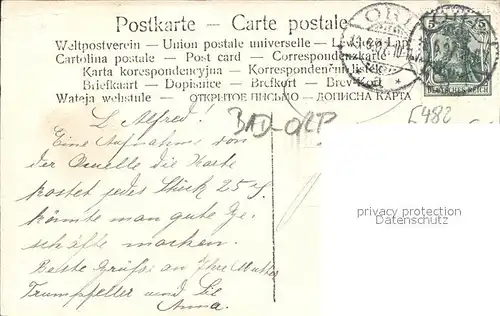 Postkarte — Carte postale
Weltpostverein — Union postale universelle —
Cartolina postale — Post card — Correspondenzkarte
Karta korespondencyjna — Korrespondenční lístek
Briefkaart — Dopisnice — Brefkort — Brev-Kort
— ОТКРЫТОЕ ПИСЬМО — ДОПИСНА КАРТА
DEUTSCHES REICH
5
BAD-ORP
L Alfred!
Eine Aufnahme von
der Quelle die Karte
kostet jedes Stück 25 Pf.
könnte man gute Ge-
schäfte machen.
Beste Grüße an Ihre Mutter
und Sie
Anna.
privacy protection
watermark